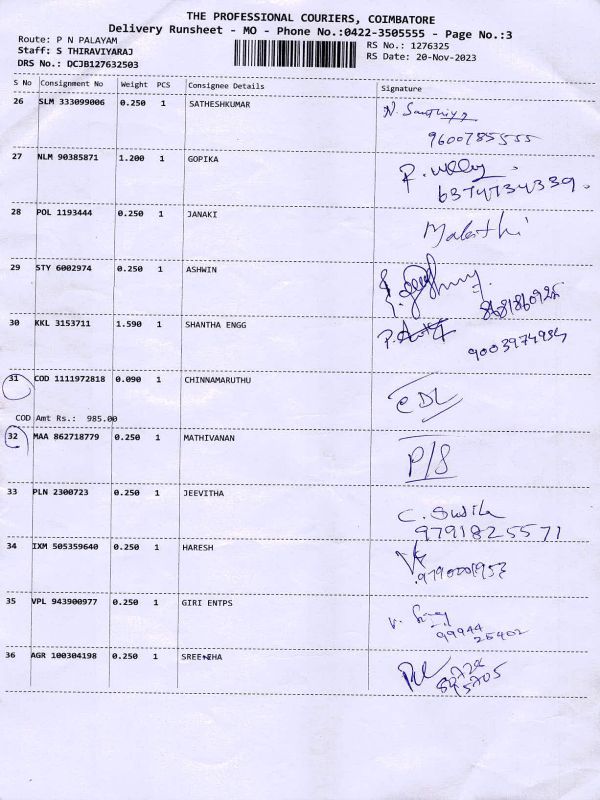 THE PROFESSIONAL COURIERS, COIMBATORE
Delivery Runsheet - MO - Phone No.:0422-3505555 - Page No.:3
Route: P N PALAYAM
RS No.: 1276325
Staff: S THIRAVIYARAJ
RS Date: 20-Nov-2023
DRS No.: DCJB127632503
S No Consignment No Weight PCS Consignee Details Signature
26 SLM 333099006 0.250 1 SATHESHKUMAR
9600785555
27 NLM 90385871 1.200 1 GOPIKA
6374734339.
28 POL 1193444 0.250 1 JANAKI Malathi
29 STY 6002974 0.250 1 ASHWIN
30 KKL 3153711 1.590 1 SHANTHA ENGG
31 COD 1111972818 0.090 1 CHINNAMARUTHU
COD Amt Rs.: 985.00
32 MAA 862718779 0.250 1 MATHIVANAN
P/S
33 PLN 2300723 0.250 1 JEEVITHA
C. Susila
9791825571
34 IXM 505359640 0.250 1 HARESH
35 VPL 943900977 0.250 1 GIRI ENTPS
99944
25402
36 AGR 100304198 0.250 1